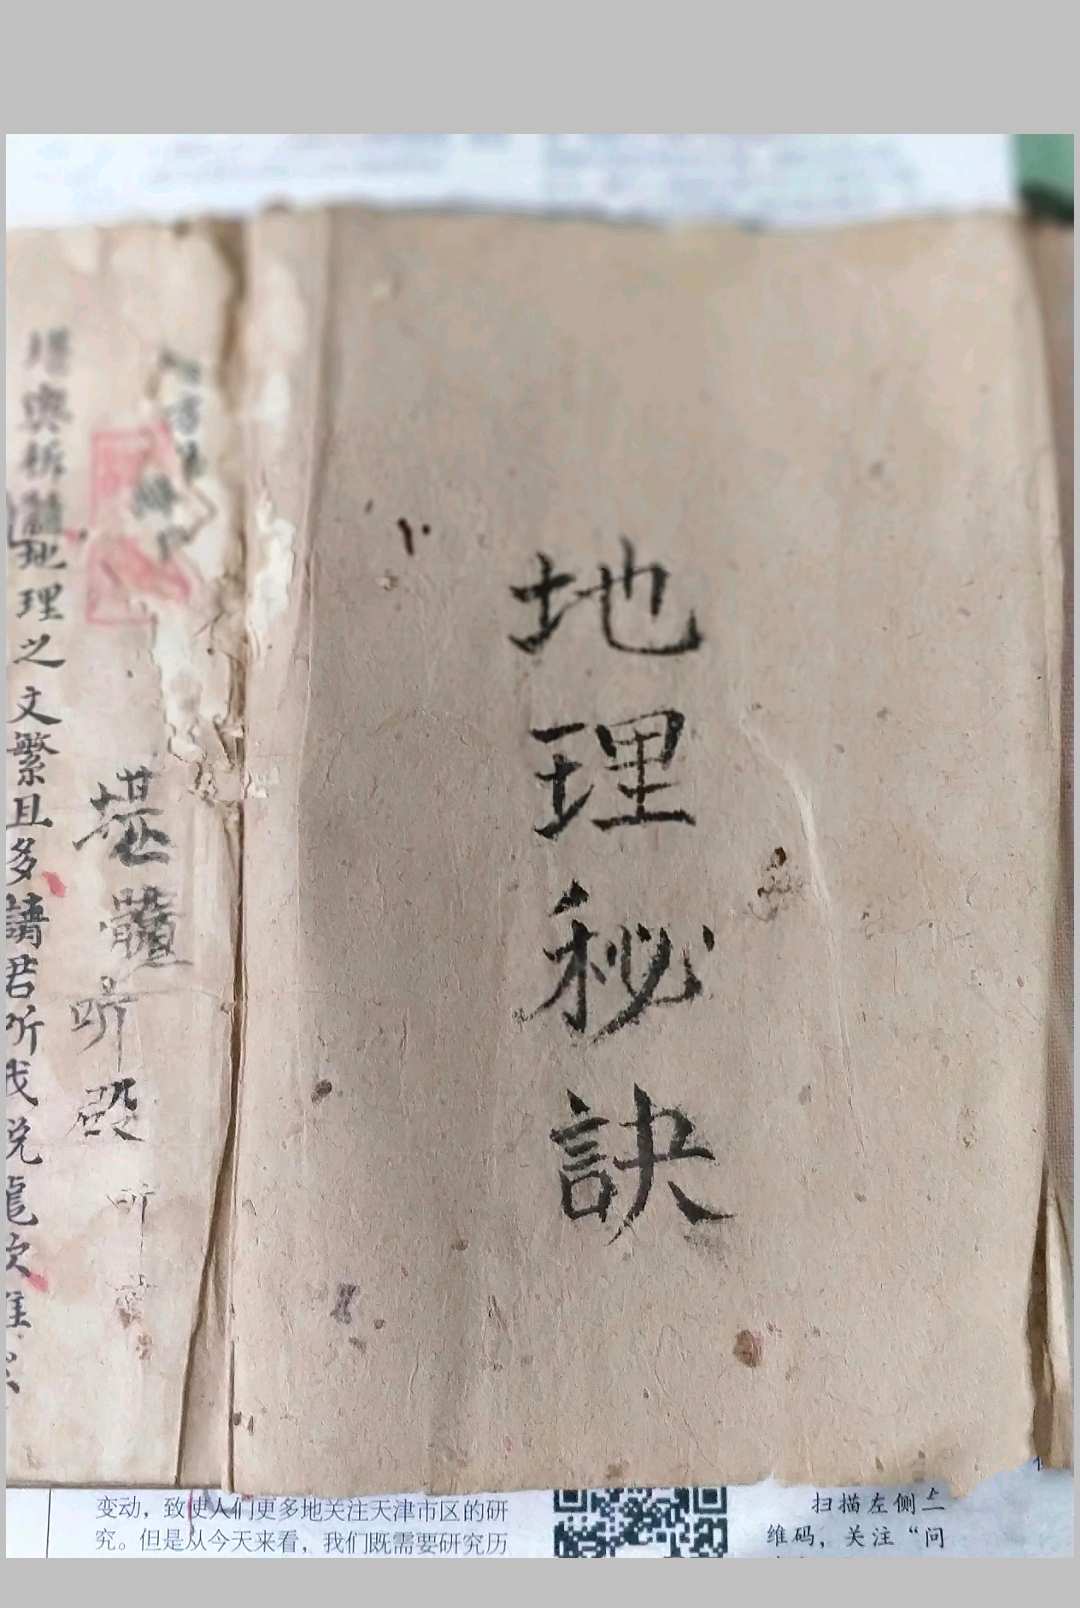 地理秘訣
堪髓听
堪輿析髓地理之文繁且多請君听我説龍次
变动，致使人们更多地关注天津市区的研
究。但是从今天来看，我们既需要研究历
扫描左侧二
维码，关注“问